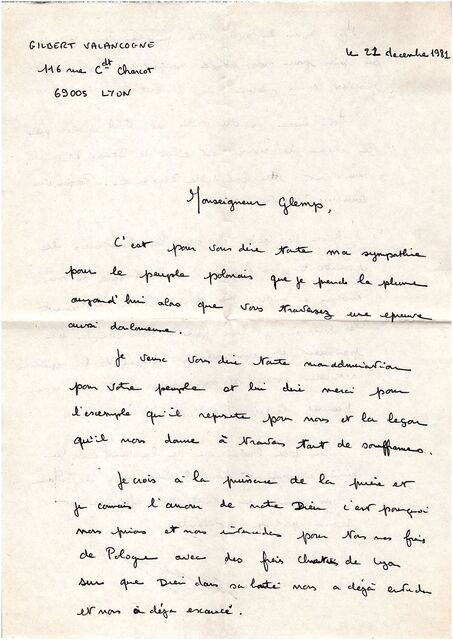 GILBERT VALANCOGNE
116 rue Cdt Charcot
69005 LYON
le 21 decembre 1981
Monseigneur Glemp,
C'est pour vous dire toute ma sympathie
pour le peuple polonais que je prends la plume
aujourd'hui alors que vous traversez une epreuve
aussi douloureuse.
Je veux vous dire toute mon admiration
pour votre peuple et lui dire merci pour
l'exemple qu'il represente pour nous et la leçon
qu'il nous donne à travers tant de souffrances.
Je crois à la puissance de la prière et
je connais l'amour de notre Dieu c'est pourquoi
nous prions et nous intercedons pour tous nos freres
de Pologne avec des freres de Lyon
sur que Dieu dans sa bonté nous a déjà entendu
et nous a déja exaucé.